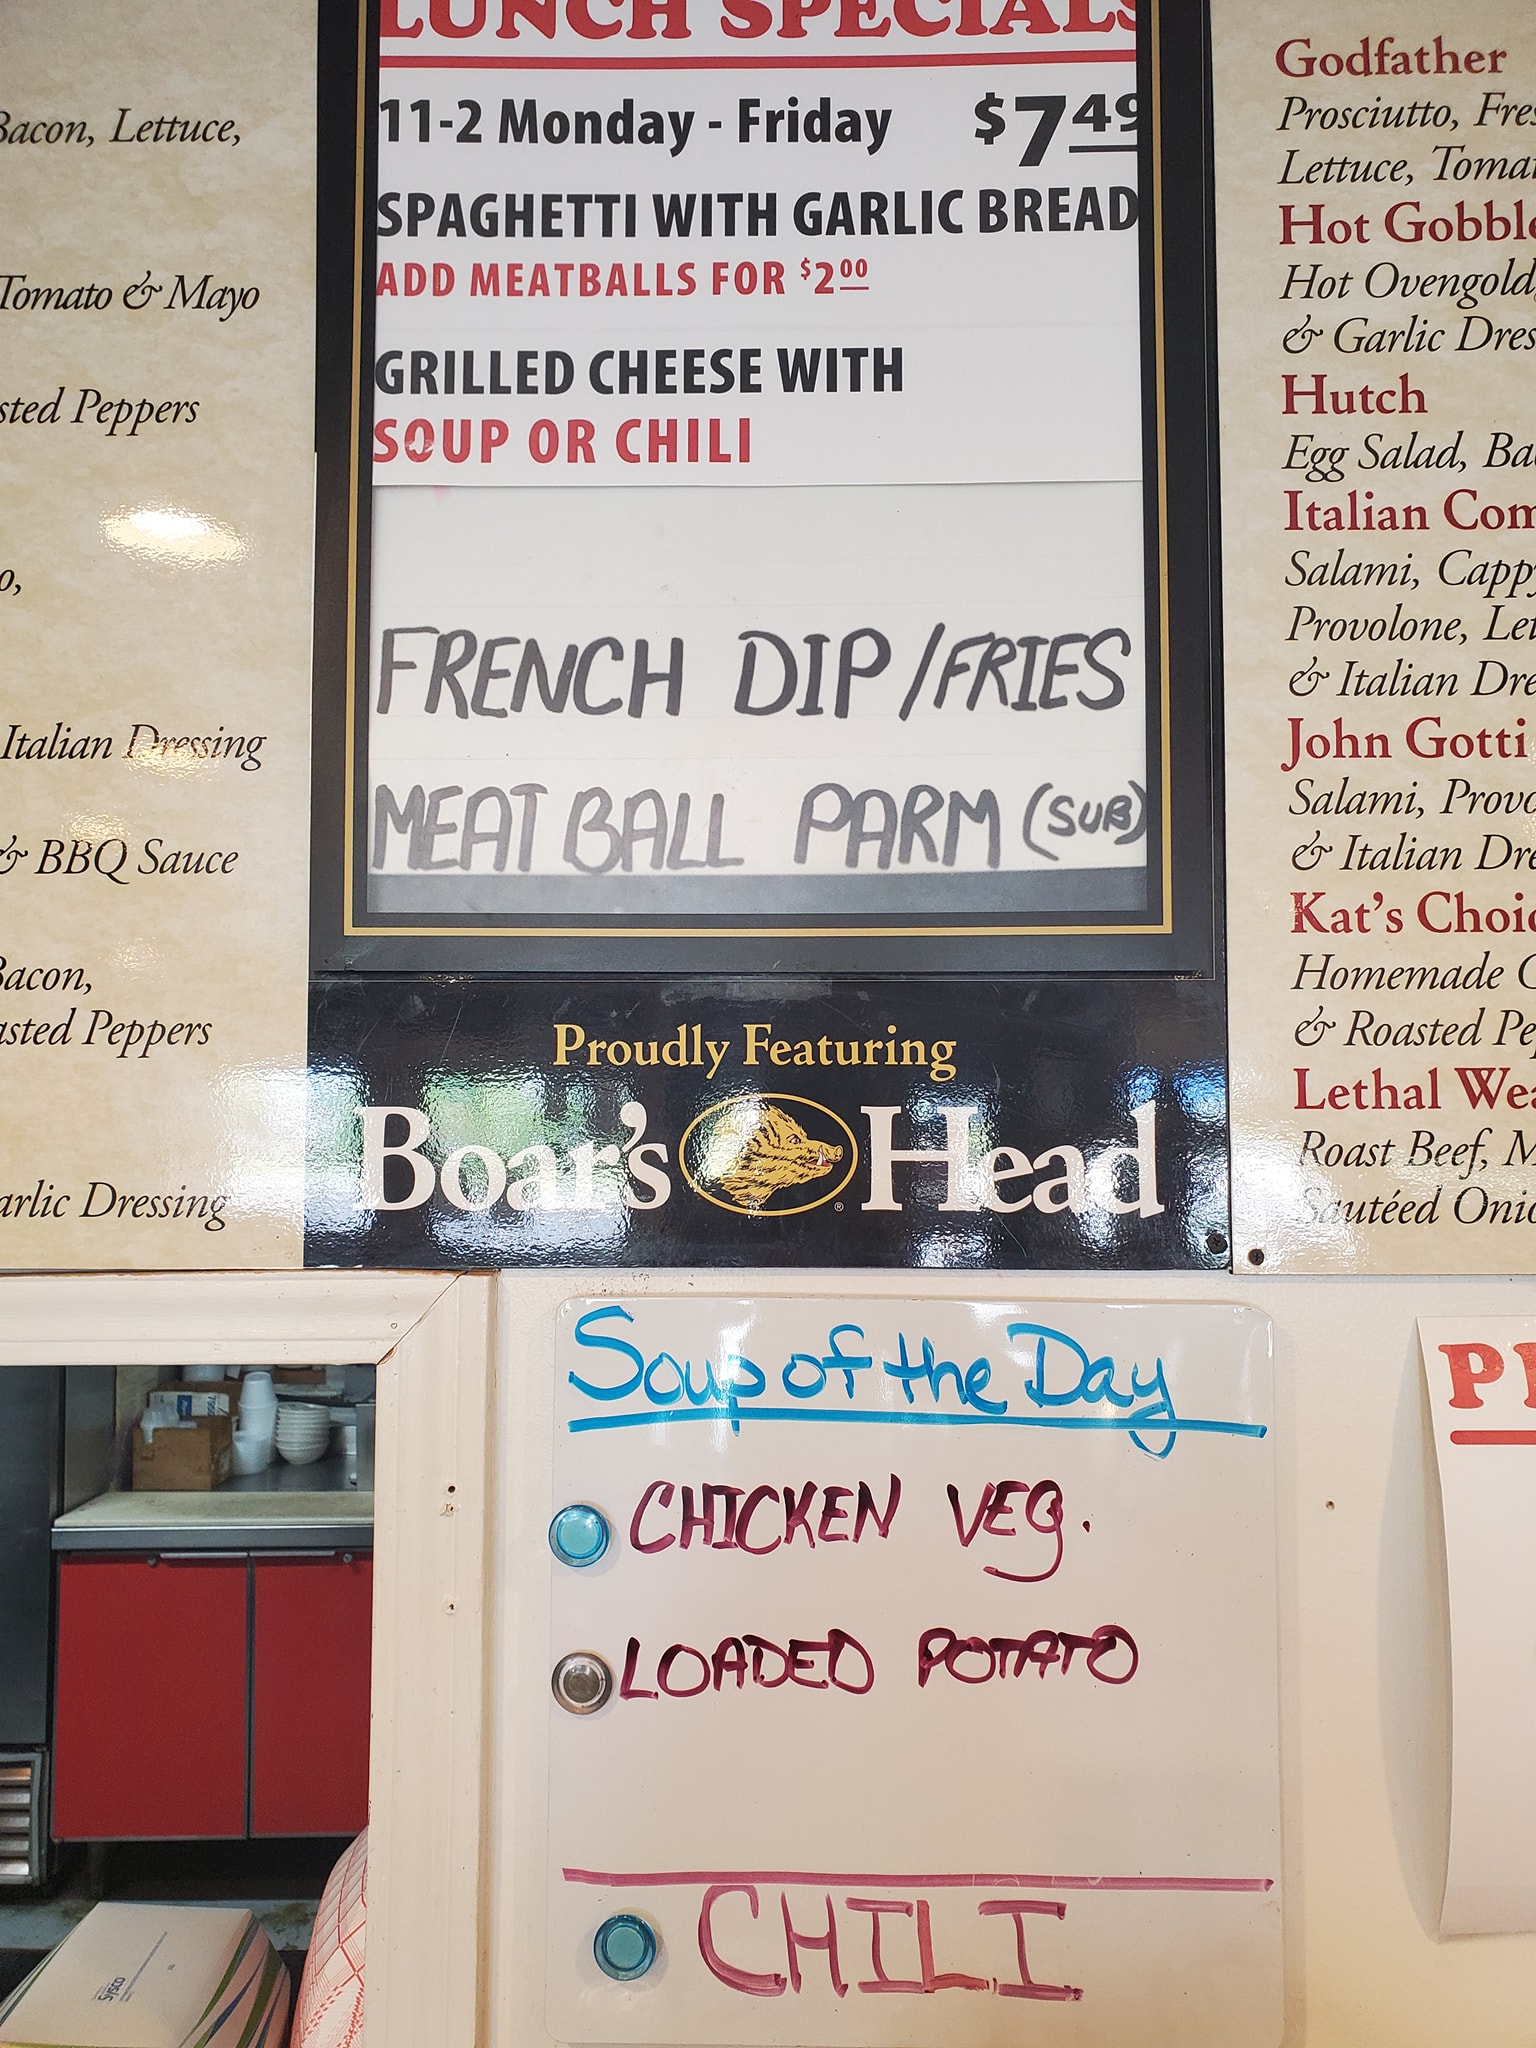 Bacon, Lettuce,
Tomato & Mayo
Peppers
Italian Dressing
& BBQ Sauce
Bacon,
Peppers
Dressing
LUNCH SPECIALS
11-2 Monday - Friday $7.49
SPAGHETTI WITH GARLIC BREAD
ADD MEATBALLS FOR $2.00
GRILLED CHEESE WITH
SOUP OR CHILI
FRENCH DIP/FRIES
MEATBALL PARM (SUB)
Proudly Featuring
Boar's Head
®
Godfather
Prosciutto,
Lettuce,
Hot
Hot Ovengold,
& Garlic
Hutch
Egg Salad,
Italian
Salami,
Provolone,
& Italian
John Gotti
Salami,
& Italian
Kat's
Homemade
& Roasted
Lethal
Roast Beef,
Sautéed
Soup of the Day
CHICKEN VEG.
LOADED POTATO
CHILI
Sysco